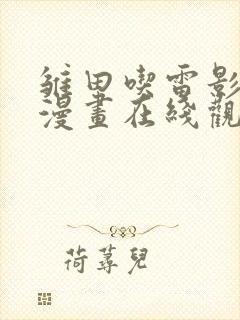 雏田喫雷影
漫畫在綫觀
荷蕁兒